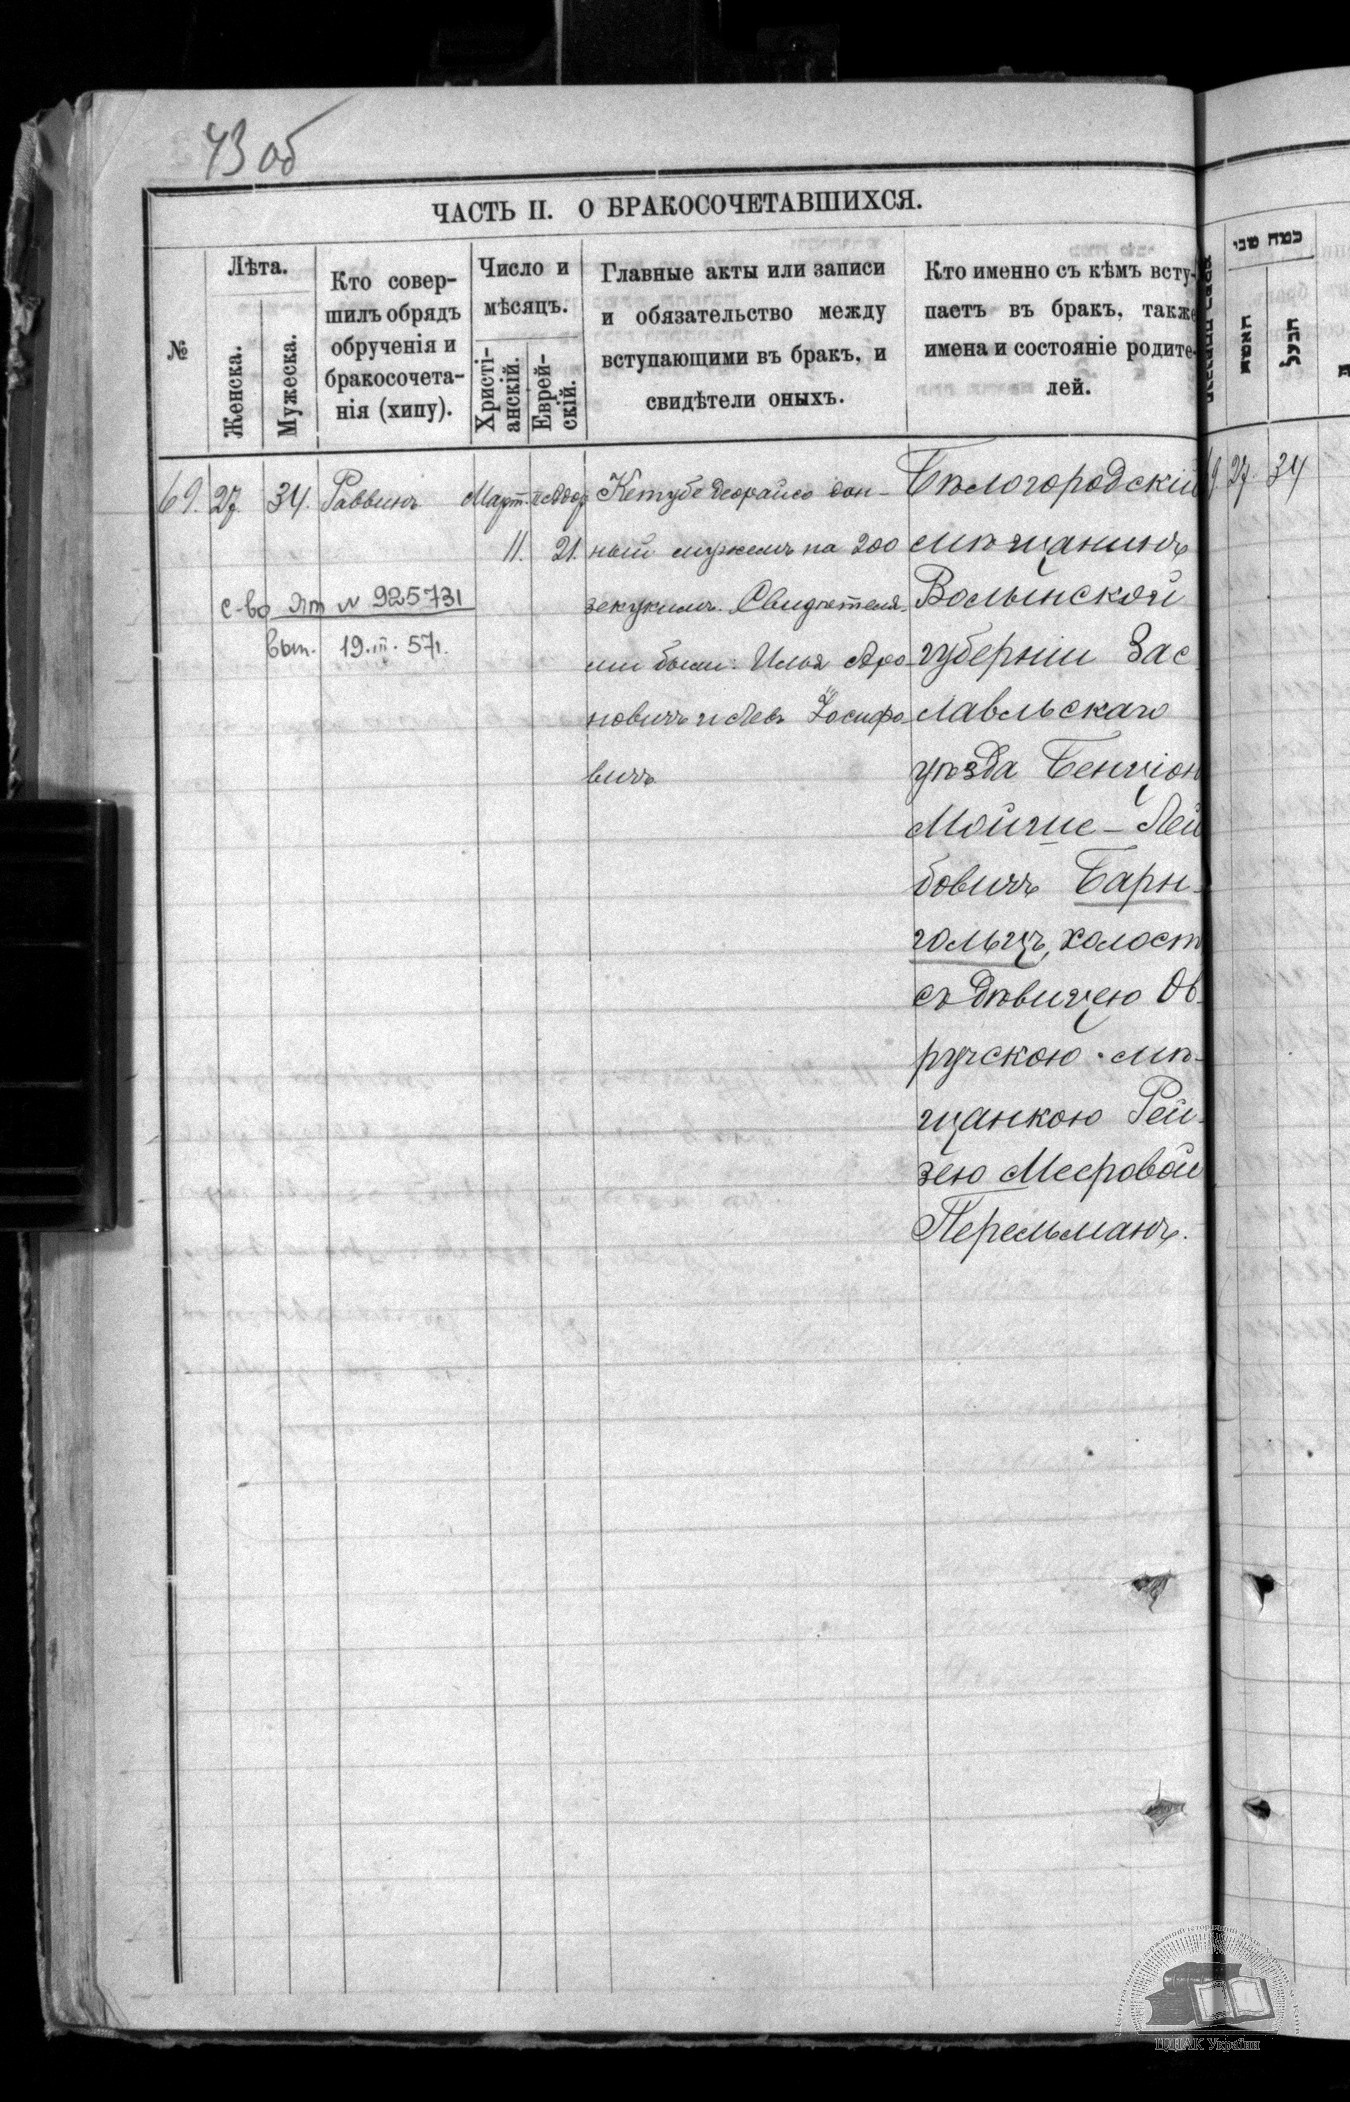 43 об
ЧАСТЬ II. О БРАКОСОЧЕТАВШИХСЯ.
№
Лѣта.
Женска.
Мужеска.
Кто совер-
шилъ обрядъ
обрученія и
бракосочета-
нія (хипу).
Число и
мѣсяцъ.
Христі-
анскій.
Еврей-
скій.
Главные акты или записи
и обязательство между
вступающими въ бракъ, и
свидѣтели оныхъ.
Кто именно съ кѣмъ всту-
паетъ въ бракъ, также
имена и состояніе родите-
лей.
כמה שני
האשה
הבעל
69. 27. 34. Раввинъ
Март.
11. 21.
с-во Ят № 925731
вып. 19.III.57г.
Кетубе деорайсо дан-
ный мужемъ на 200
зекукимъ. Свидѣтеля-
ми были: Илья Аро-
новичъ и Левъ Іосифо-
вичъ
Бѣлогородскій
мѣщанинъ
Волынской
губерніи Зас-
лавльскаго
уѣзда Бенціон
Мойше-Лей
бовичъ Барн-
гольцъ, холост
съ дѣвицею Ов-
ручскою мѣ-
щанкою Рей-
зею Меєровой
Перельманъ.
27. 34
ЦДІАК України